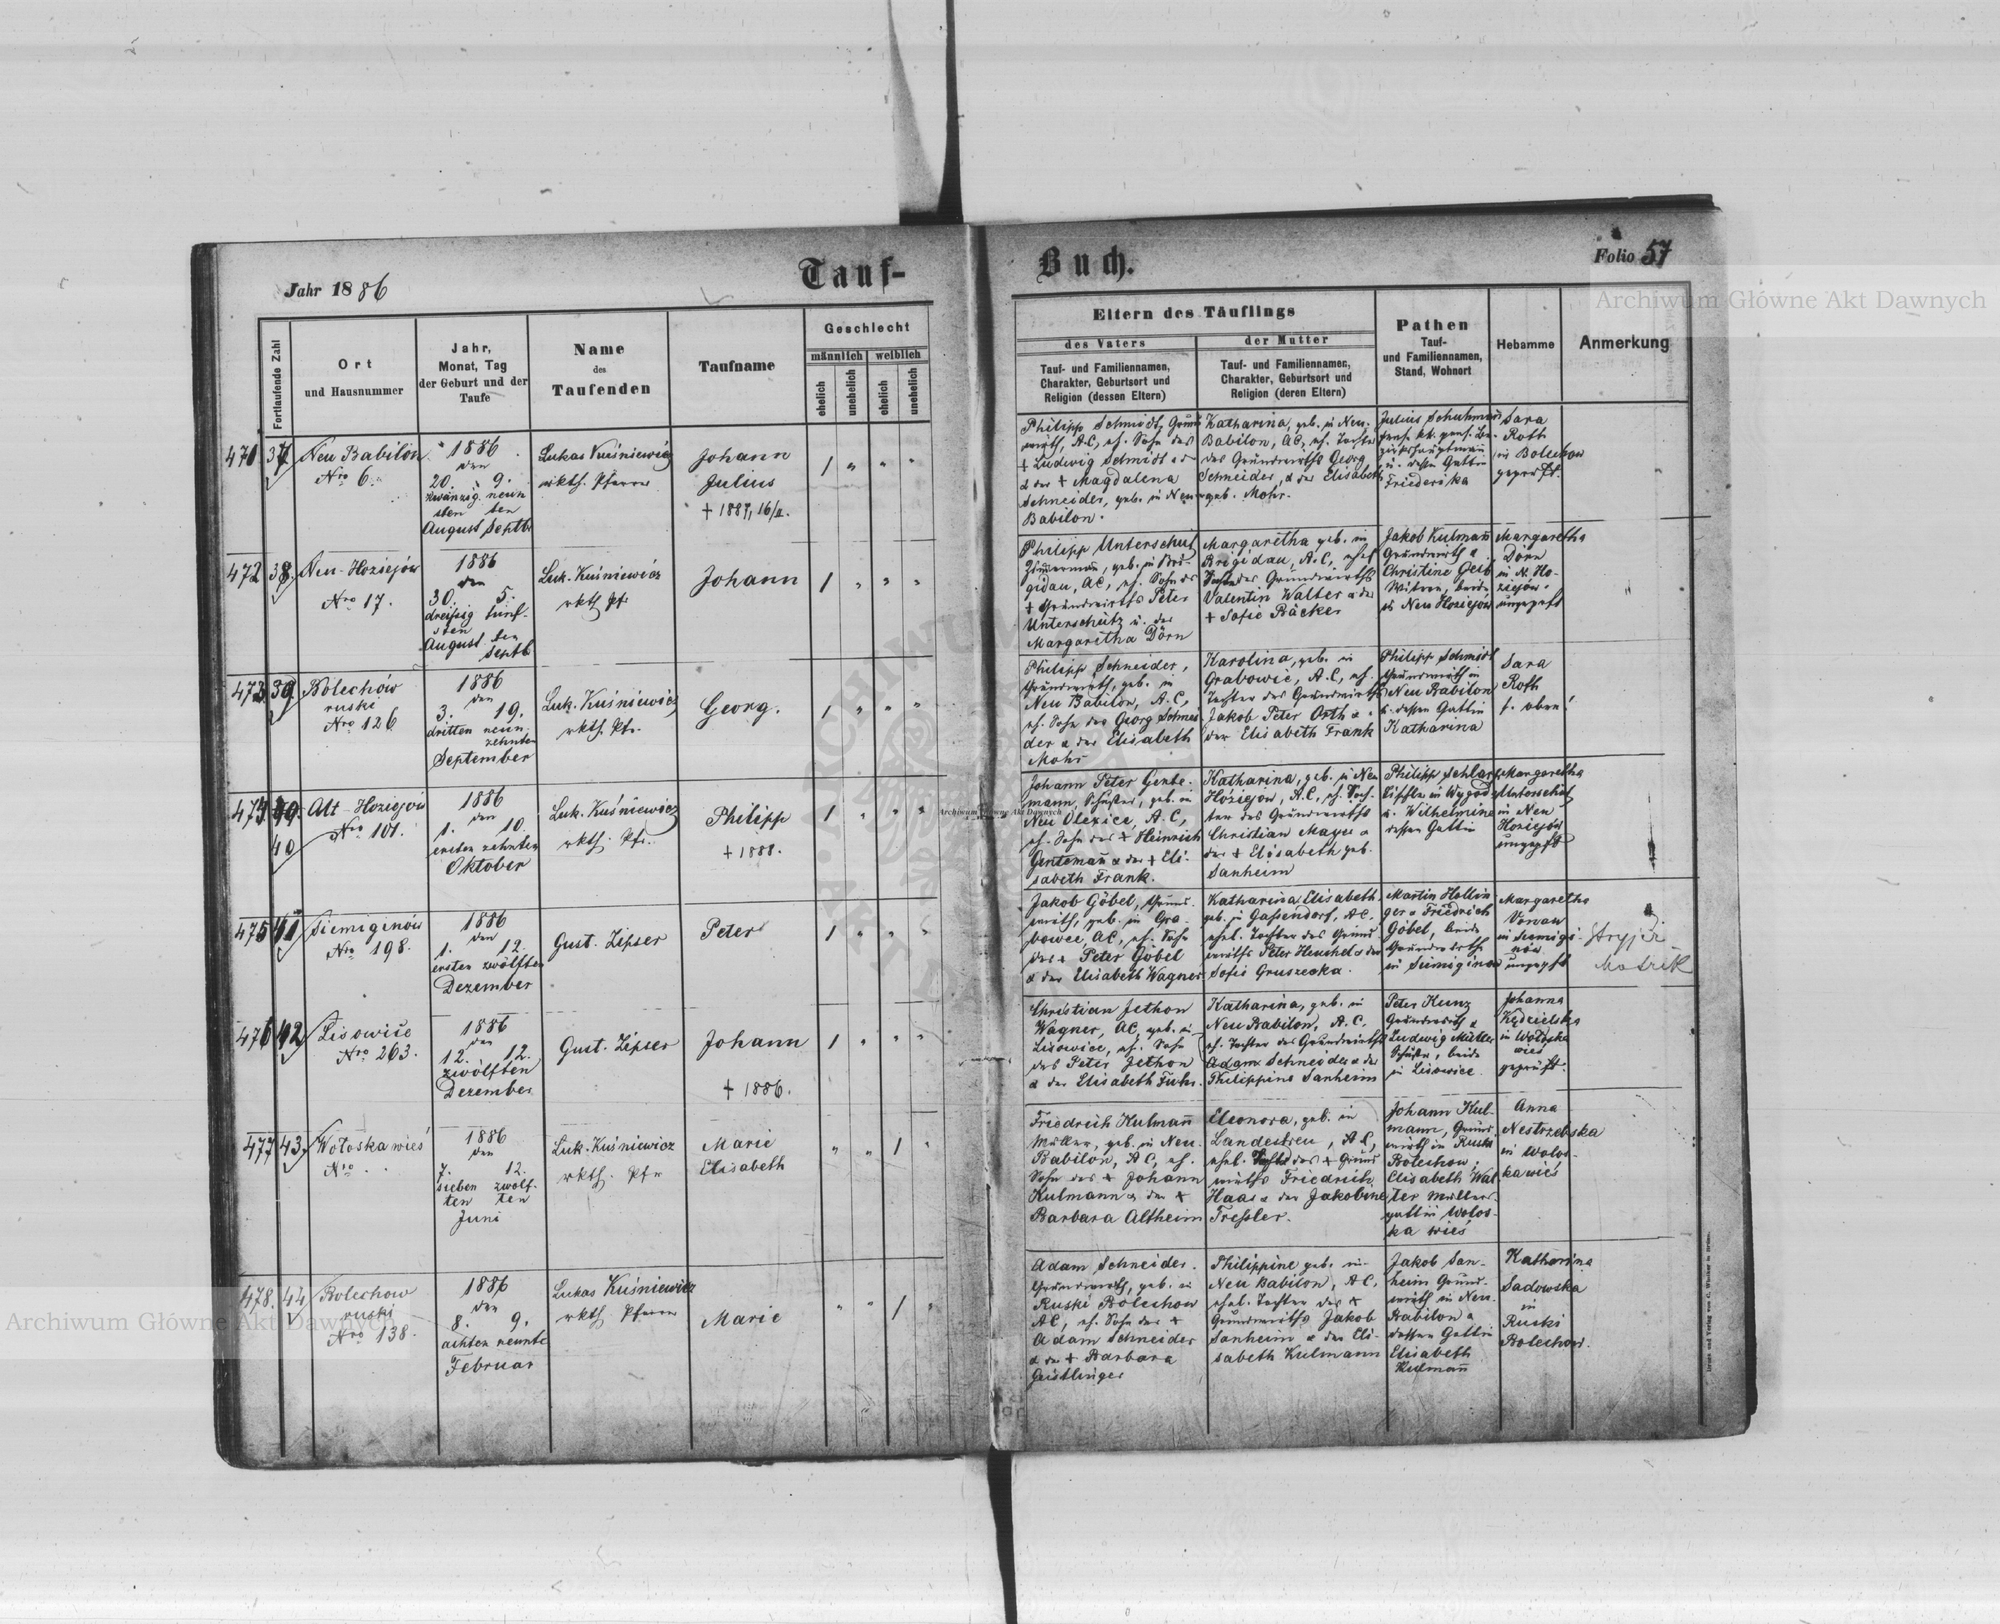 Jahr 1886
Tauf-
Buch.
Folio 57
Archiwum Główne Akt Dawnych
Fortlaufende Zahl
Ort
und Hausnummer
Jahr,
Monat, Tag
der Geburt und der
Taufe
Name
des
Taufenden
Taufname
Geschlecht
männlich weiblich
ehelich
unehelich
ehelich
unehelich
Eltern des Täuflings
des Vaters
Tauf- und Familiennamen,
Charakter, Geburtsort und
Religion (dessen Eltern)
der Mutter
Tauf- und Familiennamen,
Charakter, Geburtsort und
Religion (deren Eltern)
Pathen
Tauf-
und Familiennamen,
Stand, Wohnort
Hebamme
Anmerkung
471 37
Neu Babilon
Nro 6.
1886
den
20. 9.
zwanzig neun
sten ten
August Septbr
Lukas Kuśniewicz
rkth. Pfarrer
Johann
Julius
+ 1887, 16/II.
1 " " "
Philipp Schmidt, Grund
wirth, A.C., eh. Sohn des
+ Ludwig Schmidt
& der + Magdalena
Schneider, geb. in Neu
Babilon.
Katharina, geb. in Neu-
Babilon, AC, eh. Tochter
des Grundwirths Georg
Schneider, & der Elisabeth
geb. Mohr.
Julius Schuhmann
u. dessen Gattin
Friederika
Sara
Roth
in Bolechow
geprüft.
472 38.
Neu-Hoziejów
Nro 17.
1886
den
30. 5.
dreißig fünf-
sten ten
August Septb
Luk. Kuśniewicz
rkth Pfr
Johann
1 " " "
Philipp Unterschütz
Zimmermann, geb. in Bri-
gidau, AC, eh. Sohn des
+ Grundwirths Peter
Unterschütz u. der
Margaretha Dörn
Margaretha geb. in
Brigidau, A.C., ehel
Tochter des Grundwirths
Valentin Walter & der
+ Sofie Bäcker
Jakob Kulmañ
Grundwirth &
Christine Geib
Witwe, beide
in Neu Hoziejów
Margaretha
Dörn
in N. Ho-
ziejów.
ungeprft
473 39
Bolechów
ruski
Nro 126
1886
den
3. 19.
dritten neun
zehnten
September
Luk. Kuśniewicz
rkth. Pfr.
Georg.
1 " " "
Philipp Schneider,
Grundwirth, geb. in
Neu Babilon, A.C.,
eh. Sohn des Georg Schnei
der & der Elisabeth
Mohr
Karolina, geb. in
Grabowic, A.C., eh.
Tochter des Grundwirths
Jakob Peter Orth &
der Elisabeth Frank
Philipp Schmidt
Grundwirth in
Neu Babilon
u. dessen Gattin
Katharina
Sara
Roth
s. oben!
474 40
40
Alt-Hoziejów
Nro 101.
1886
den
1. 10.
ersten zehnten
Oktober
Luk. Kuśniewicz
rkth. Pfr.
Philipp
+ 1888.
1 " " "
Johann Peter Gente-
mann, Schuster, geb. in
Neu Olexice, A.C.,
eh. Sohn des + Heinrich
Gentemañ & der + Eli-
sabeth Frank.
Katharina, geb. in Neu
Hoziejow, A.C., eh. Toch-
ter des Grundwirths
Christian Mayer &
der + Elisabeth geb.
Sanheim
Philipp Schlar
Tischler in Wygoda
u. Wilhelmine
dessen Gattin
Margaretha
Unterschütz
in Neu
Hoziejów
ungeprft
475 41
Siemiginów
Nro 198.
1886
den
1. 12.
ersten zwölften
Dezember
Gust. Zipser
Peter
1 " " "
Jakob Göbel, Grund-
wirth, geb. in Gra-
bowce, AC, eh. Sohn
des + Peter Göbel
& der Elisabeth Wagner
Katharina Elisabeth
geb. in Gassendorf, AC.
ehel. Tochter des Grund
wirths Peter Heuchel & der
Sofie Gruszecka.
Martin Hollin
ger & Friedrich
Göbel, beide
Grundwirthe
in Siemiginow
Margaretha
in Siemigi-
nów
ungeprft
Stryj
476 42
Lisowice
Nro 263.
1886
den
12. 12.
zwölften
Dezember
Gust. Zipser
Johann
+ 1886.
1 " " "
Christian Jethon
Wagner, AC, geb. in
Lisowice, eh. Sohn
des Peter Jethon
& der Elisabeth Fuhr.
Katharina, geb. in
Neu Babilon, A.C.
eh. Tochter des Grundwirths
Adam Schneider & der
Philippine Sanheim
Peter Kunz
Grundwirth &
Ludwig Müller
Schuster, beide
in Lisowice.
Johanna
Kędzielska
in Wołoska
wieś
geprüft.
477 43.
Wołoska wieś
Nro . .
1886
den
7. 12.
sieben zwölf-
ten ten
Juni
Luk. Kuśniewicz
rkth. Pfr
Marie
Elisabeth
" " 1 "
Friedrich Kulmañ
Müller, geb. in Neu-
Babilon, AC, eh.
Sohn des + Johann
Kulmann & der +
Barbara Altheim
Eleonora, geb. in
Landestreu, A.C,
ehel. Tochter des + Grund
wirths Friedrich
Haas & der Jakobine
Tressler.
Johann Kul-
mann, Grund
wirth in Ruski
Bolechow.
Elisabeth Wal
ter Müllers-
gattin Wołos-
ka wieś
Anna
Nestrzebska
in Wołos-
kawieś
478. 44
Bolechow
ruski
Nro 138.
1886
den
8. 9.
achten neunte
Februar
Lukas Kuśniewicz
rkth. Pfarrer
Marie
" " 1 "
Adam Schneider.
Grundwirth, geb. in
Ruski Bolechow
AC, eh. Sohn des +
Adam Schneider
& der + Barbara
Geistlinger
Philippine geb. in
Neu Babilon, AC.
ehel. Tochter des +
Grundwirths Jakob
Sanheim & der Eli-
sabeth Kulmann
Jakob San-
heim Grund-
wirth in Neu-
Babilon &
dessen Gattin
Elisabeth
Kulmañ
Katharina
Sadowska
in
Ruski
Bolechow.
Archiwum Główne Akt Dawnych
Archiwum Główne Akt Dawnych